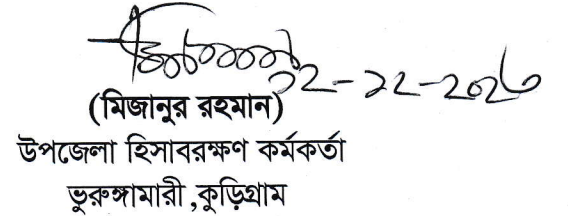 (মিজানুর রহমান)
উপজেলা হিসাবরক্ষণ কর্মকর্তা
ভুরুঙ্গামারী ,কুড়িগ্রাম